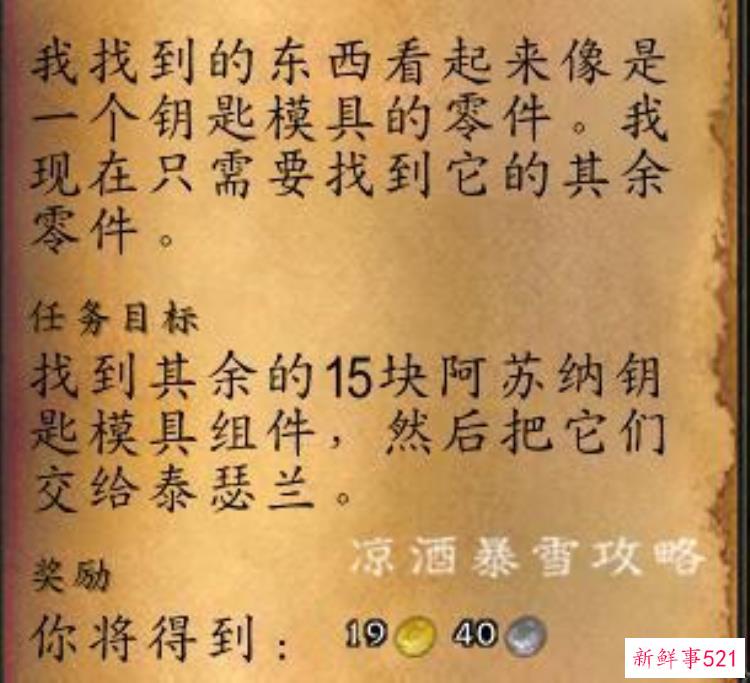 我找到的东西看起来像是
一个钥匙模具的零件。我
现在只需要找到它的其余
零件。
任务目标
找到其余的15块阿苏纳钥
匙模具组件，然后把它们
交给泰瑟兰。
凉酒暴雪攻略
奖励
你将得到： 19 40
新鲜事521